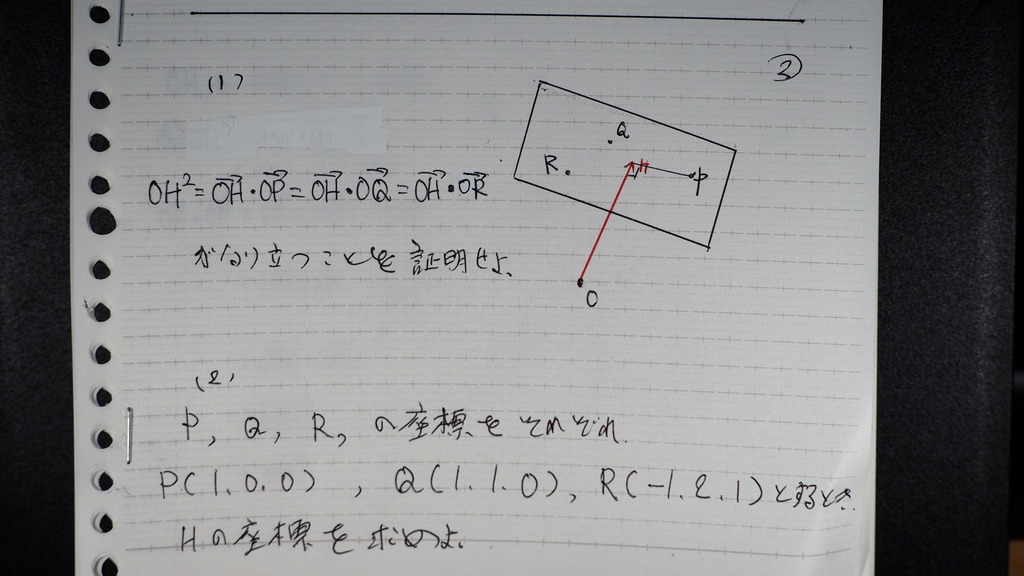 ③
(1)
Q
R
H
P
O
OH²=OH・OP=OH・OQ=OH・OR
が成り立つことを証明せよ、
(2)
P, Q, R, の座標をそれぞれ
P(1.0.0) , Q(1.1.0), R(-1.2.1)とするとき
Hの座標を求めよ、